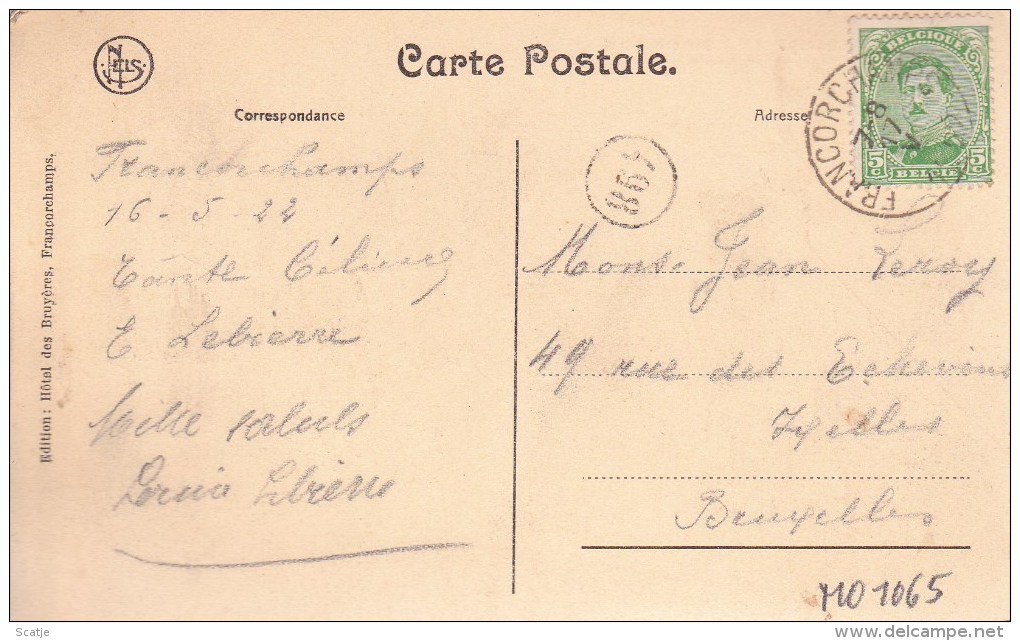 NELS
Carte Postale.
Correspondance
Adresse
Edition: Hôtel des Bruyères, Francorchamps.
BELGIQUE
5c 5c
BELGIË
FRANCORCH
Francorchamps
16 - 5 - 22
Tante Céline
E. Lebierre
Mille saluts
Mons. Jean Leroy
49 rue des Echevins
Ixelles
Bruxelles
MO 1065
Scatje
delcampe.net